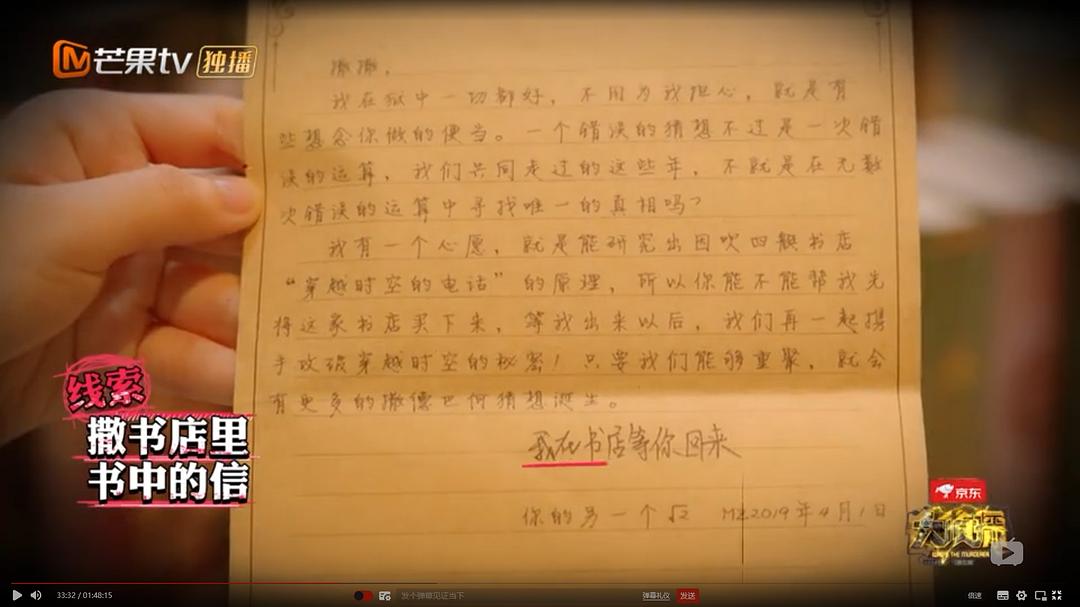 芒果tv 独播
撒撒，
我在狱中一切都好，不用为我担心，就是有
些想念你做的便当。一个错误的猜想不过是一次错
误的运算，我们共同走过的这些年，不就是在无数
次错误的运算中寻找唯一的真相吗？
我有一个心愿，就是能研究出因吹四颗书店
“穿越时空的电话”的原理，所以你能不能帮我先
将这家书店买下来，等我出来以后，我们再一起携
手攻破穿越时空的秘密！只要我们能够重聚，就会
有更多的撒德巴何猜想诞生。
我在书店等你回来
你的另一个√2 MZ 2019年4月1日
线索
撒书店里
书中的信
京东
大侦探
WHO'S THE MURDERER
33:32 / 01:48:15
发个弹幕见证当下
弹幕礼仪
发送
倍速